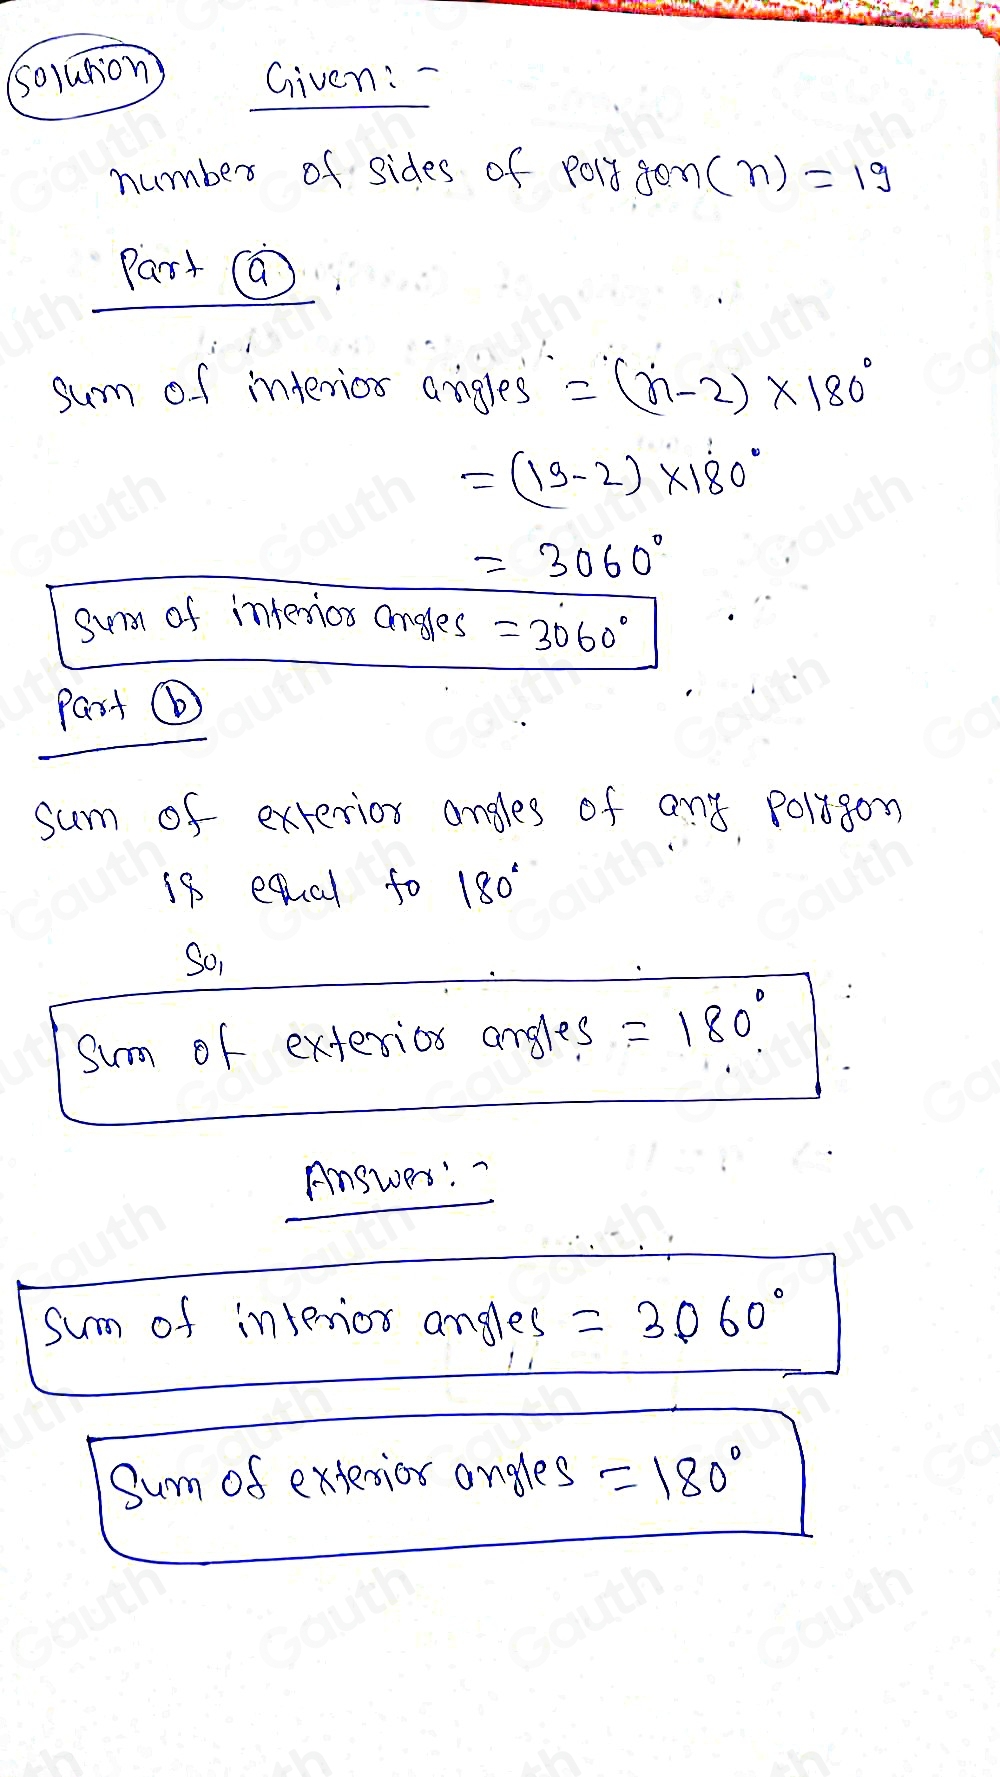 Solution Given:-
number of sides of polygon(n) = 19
Part (a).
Sum of interior angles = (n-2) × 180°
= (19-2) ×180°
= 3060°
Sum of interior angles = 3060°
Part (b)
Sum of exterior angles of any polygon
is equal to 180°
So,
Sum of exterior angles = 180°
Answer:-
Sum of interior angles = 3060°
Sum of exterior angles = 180°